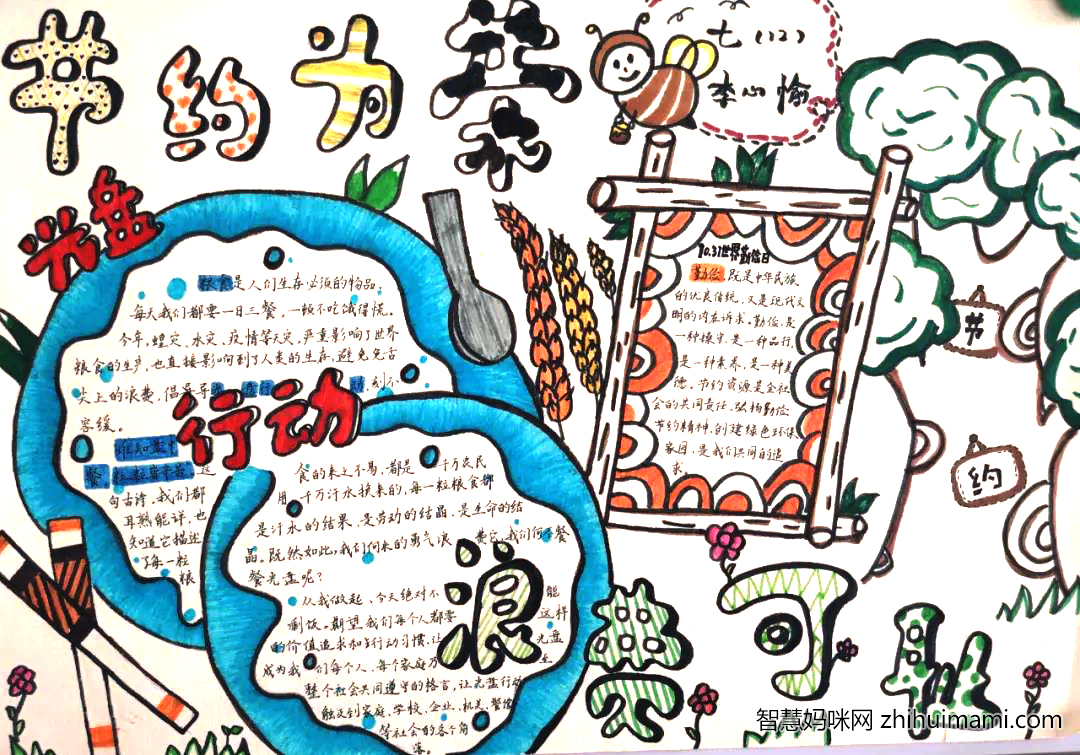 节约为荣
七（12）
李心愉
光盘
行动
粮食是人们生存必须的物品,
每天我们都要一日三餐,一顿不吃饿得慌。
今年,蝗灾、水灾、疫情等天灾,严重影响了世界
粮食的生产,也直接影响到了人类的生存,避免舌
尖上的浪费,倡导
刻不
容缓。
谁知盘中
餐,粒粒皆辛苦。这
句古诗,我们都
耳熟能详,也
知道它描述
了每一粒
粮
食的来之不易,都是 千万农民
用 千万汗水换来的,每一粒粮食都
是汁水的结果,是劳动的结晶,是生命的结
晶。既然如此,我们何来的勇气浪 费它,我们何不餐
餐光盘呢?
从我做起、今天绝对不
剩饭。期望我们每个人都要 能
的价值追求和行动习惯,让 这样
成为我 们每个人、每个家庭乃 光盘
整个社会共同遵守的格言,让光盘行动 至
触及到家庭,学校,企业,机关,警营
等社会的各个角
落。
10.31世界勤俭日
勤俭,既是中华民族
的优良传统,又是现代文
明的内在诉求。勤俭,是
一种操守,是一种品行,
是一种素养,是一种美
德。节约资源是全社
会的共同责任,弘扬勤俭
节约精神,创建绿色环保
家园,是我们共同的追
求。
节
约
浪费可耻
智慧妈咪网 zhihuimami.com